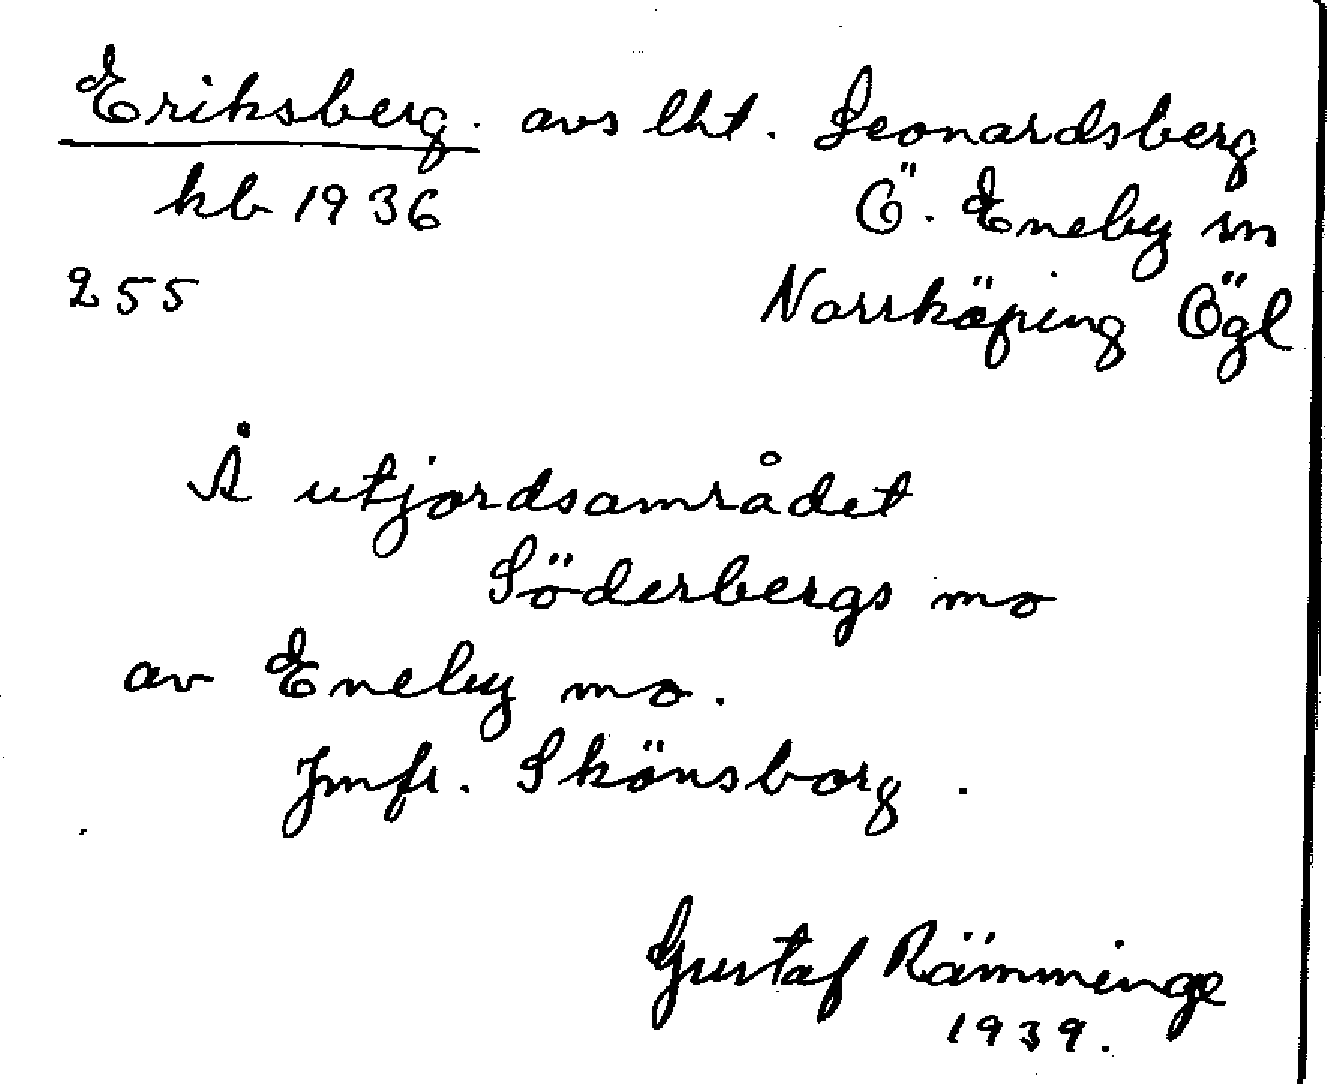 Eriksberg. avs lht. Leonardsberg
kb 1936 Ö. Eneby sn
255 Norrköping Ögl
Å utjordsområdet
Söderbergs mo
av Eneby mo.
Jmfr. Skönsborg.
Gustaf Rämminge
1939.